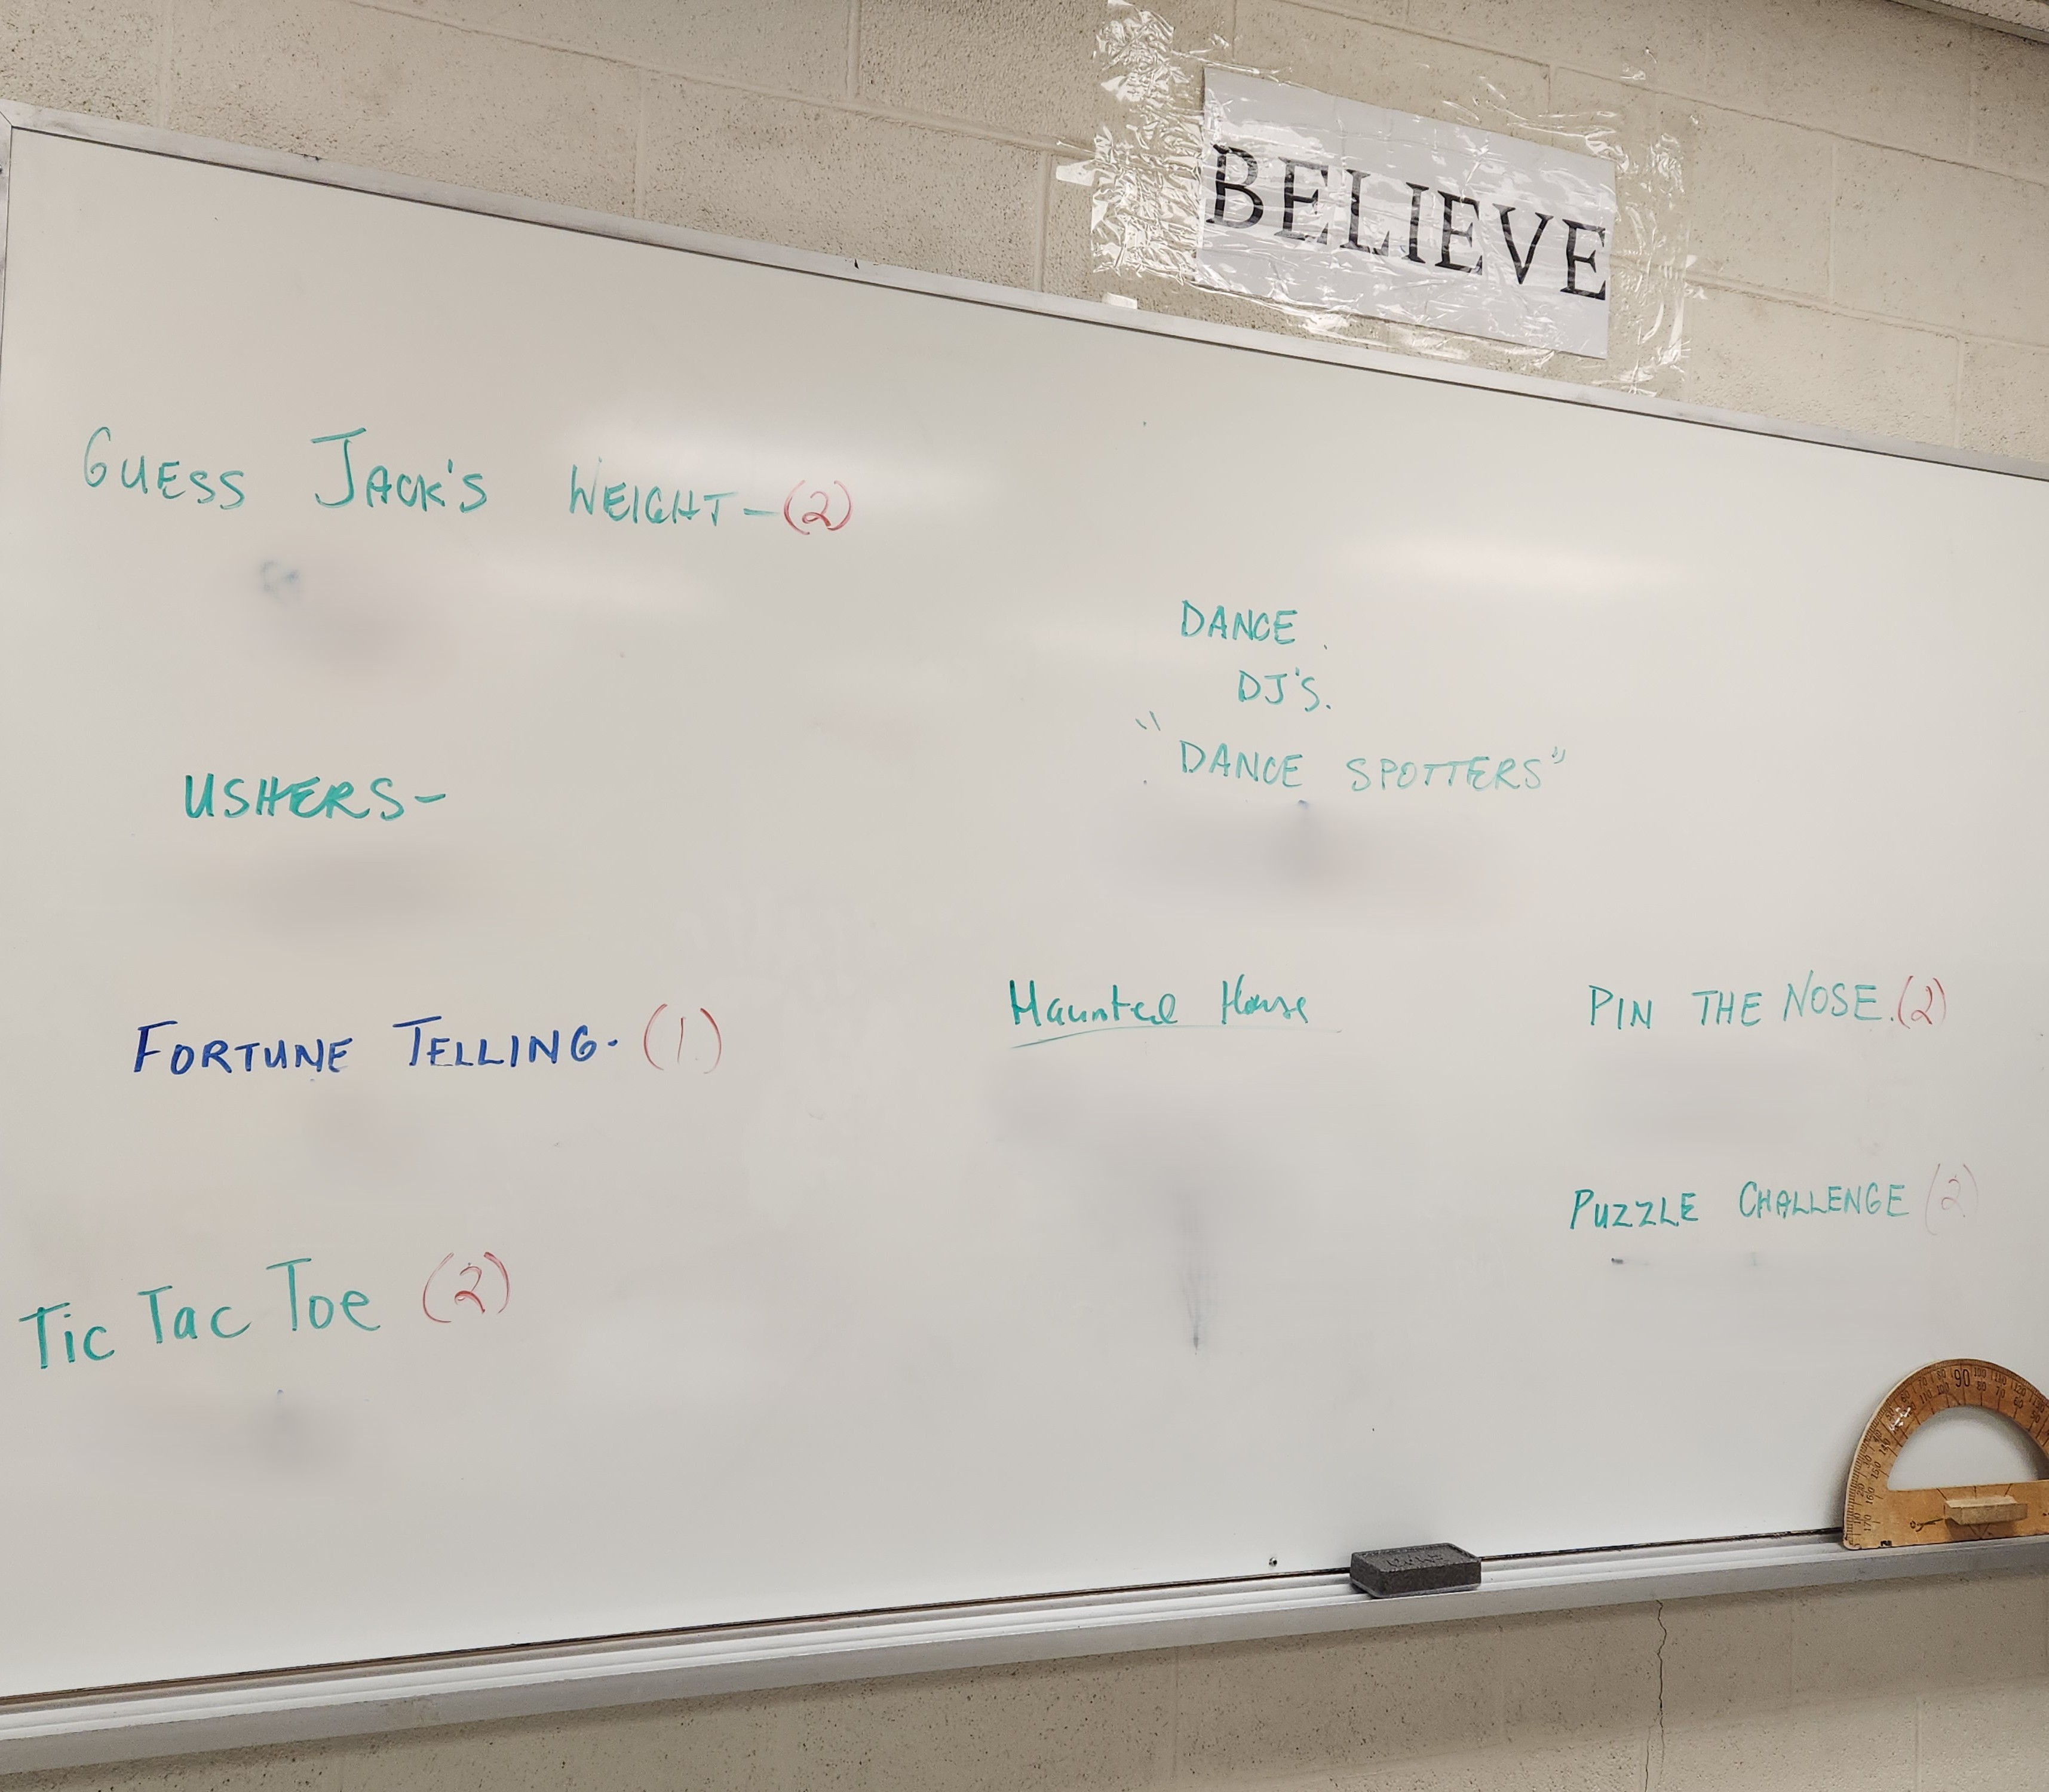 BELIEVE
GUESS JACK'S WEIGHT - (2)
DANCE
DJ'S.
USHERS-
"DANCE SPOTTERS"
FORTUNE TELLING. (1)
Haunted House
PIN THE NOSE. (2)
PUZZLE CHALLENGE (2)
Tic Tac Toe (2)
90